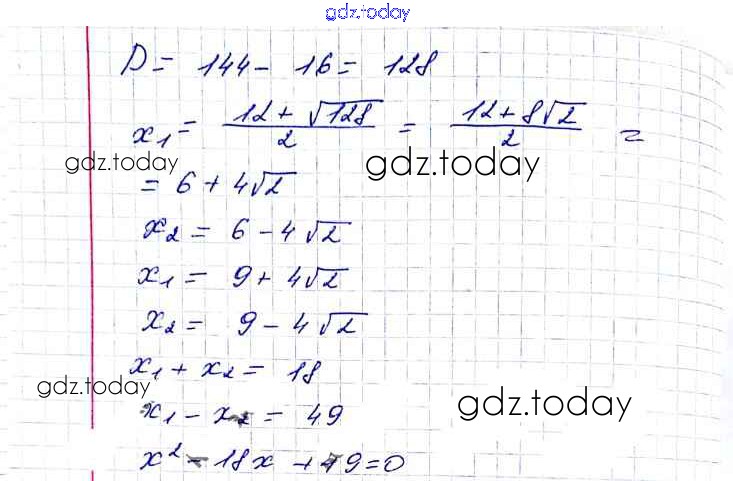 gdz.today
D = 144 - 16 = 128
x₁ = (12 + √128)/2 = (12 + 8√2)/2 =
gdz.today gdz.today
= 6 + 4√2
x₂ = 6 - 4√2
x₁ = 9 + 4√2
x₂ = 9 - 4√2
x₁ + x₂ = 18
gdz.today
x₁ - x₂ = 49
gdz.today
x² - 18x + 49 = 0